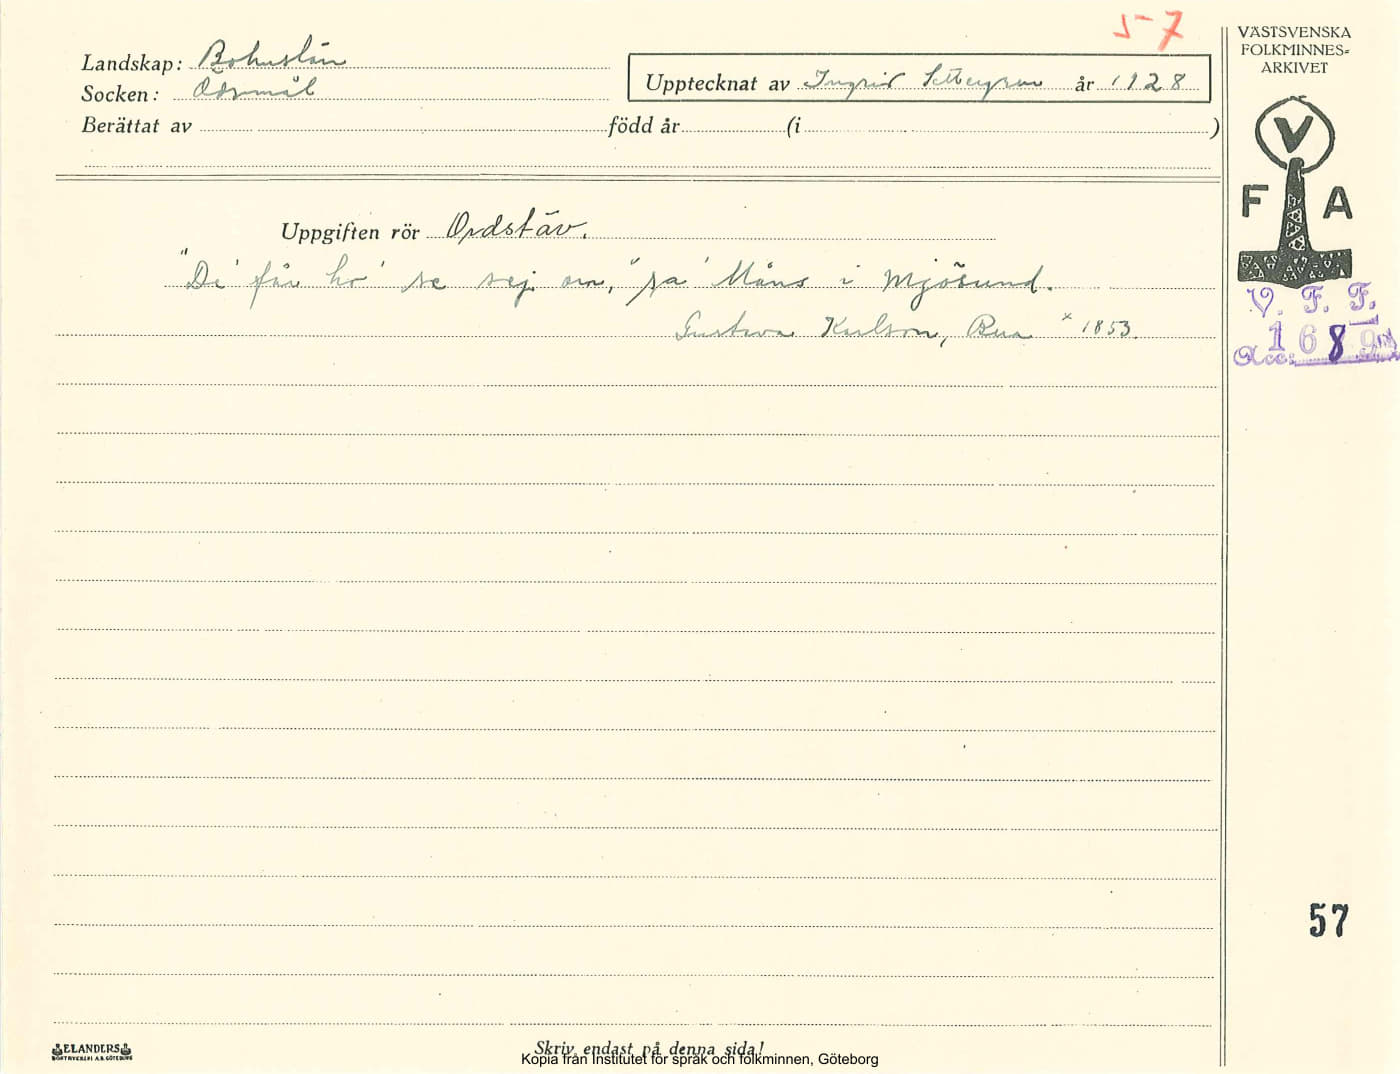 57
Landskap: Bohuslän
Socken: Ödsmål
Upptecknat av Ingrid Settergren år 1928
Berättat av född år (i )
Uppgiften rör Ordstäv.
"De' får ho' se sej om," sa' Måns i Mjösund.
Gustava Karlson, Bua * 1853.
VÄSTSVENSKA
FOLKMINNES=
ARKIVET
V
F A
V. F. F.
Acc: 168
57
ELANDERS
BOKTRYCKERI A.B. GÖTEBORG
Skriv endast på denna sida!
Kopia från Institutet för språk och folkminnen, Göteborg